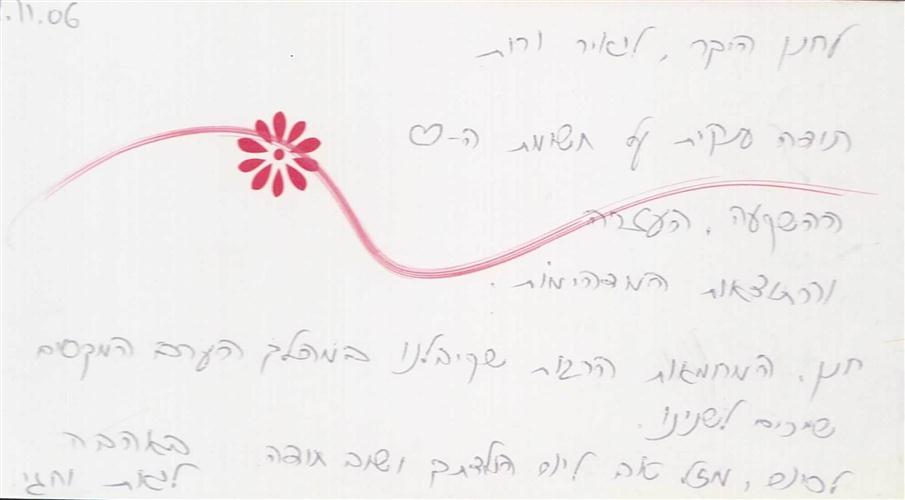 .11.06
לחנן היקר, ליאיר ורות
תודה ענקית על תשומת ה-♡
ההשקעה, העזרה
והתוצאות המדהימות.
חנן, המחמאות הרבות שקיבלנו במהלך הערב המקסים
שייכים לשנינו.
לסיום, מזל טוב ליום הולדתך ושוב תודה
באהבה
ליאת וחגי.